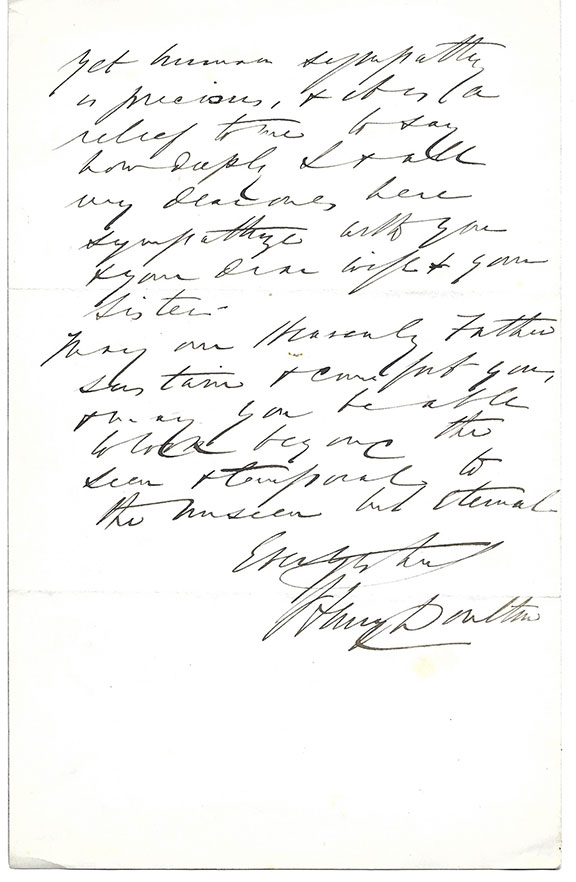 yet human sympathy
is precious, & it is a
relief to me to say
how deeply I & all
my dear ones here
sympathize with you
& your dear wife & your
sister.
May our Heavenly Father
sustain & comfort you,
& may you be able
to look beyond the
seen & temporal, to
the unseen but eternal
Ever yrs truly
Henry Doulton